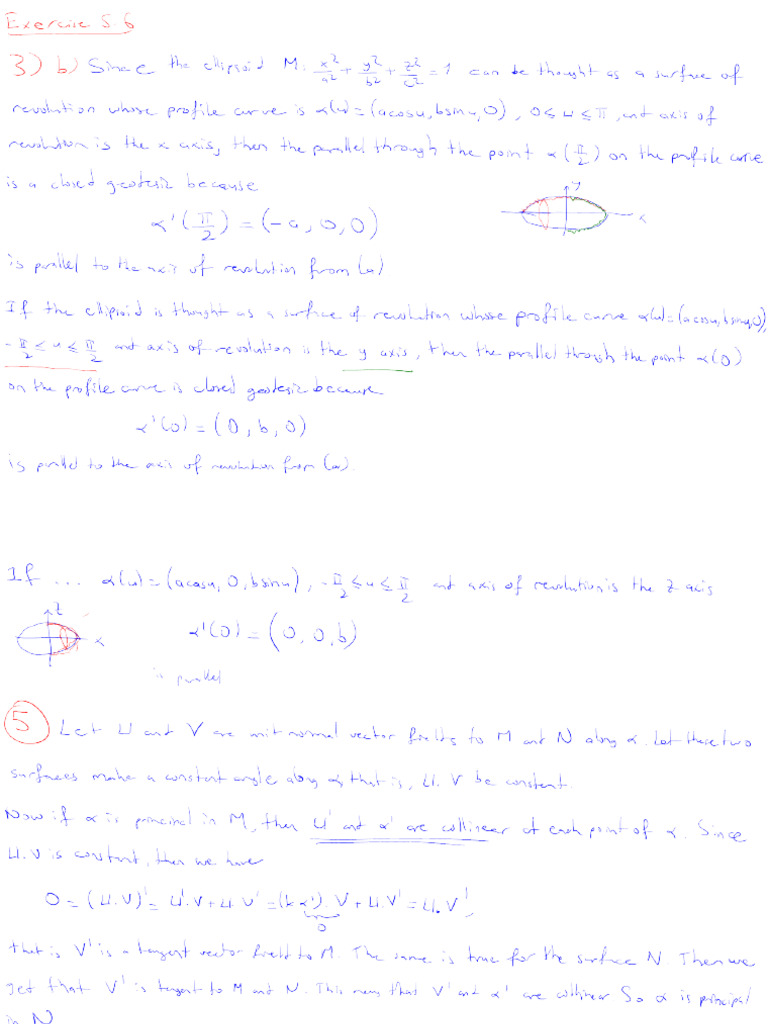 Exercise 5.6
3) b) Since the ellipsoid M: x²/a² + y²/b² + z²/c² = 1 can be thought as a surface of
revolution whose profile curve is α(u)=(acosu, bsinu, 0), 0≤u≤π, and axis of
revolution is the x axis, then the parallel through the point α(π/2) on the profile curve
is a closed geodesic because
α'(π/2) = (-a, 0, 0)
y
x
is parallel to the axis of revolution from (a)
If the ellipsoid is thought as a surface of revolution whose profile curve α(u)=(acosu, bsinu, 0),
-π/2 ≤ u ≤ π/2 and axis of revolution is the y axis, then the parallel through the point α(0)
on the profile curve is closed geodesic because
α'(0) = (0, b, 0)
is parallel to the axis of revolution from (a).
If ... α(u)=(acosu, 0, bsinu), -π/2 ≤ u ≤ π/2 and axis of revolution is the z axis
z
x
α'(0) = (0, 0, b)
is parallel
5 Let U and V are unit normal vector fields to M and N along α. Let these two
surfaces make a constant angle along α, that is, U.V be constant.
Now if α is principal in M, then U' and α' are collinear at each point of α. Since
U.V is constant, then we have
0 = (U.V)' = U'.V + U.V' = (kα').V + U.V' = U.V',
0
that is V' is a tangent vector field to M. The same is true for the surface N. Then we
get that V' is tangent to M and N. This mean that V' and α' are collinear So α is principal
in N